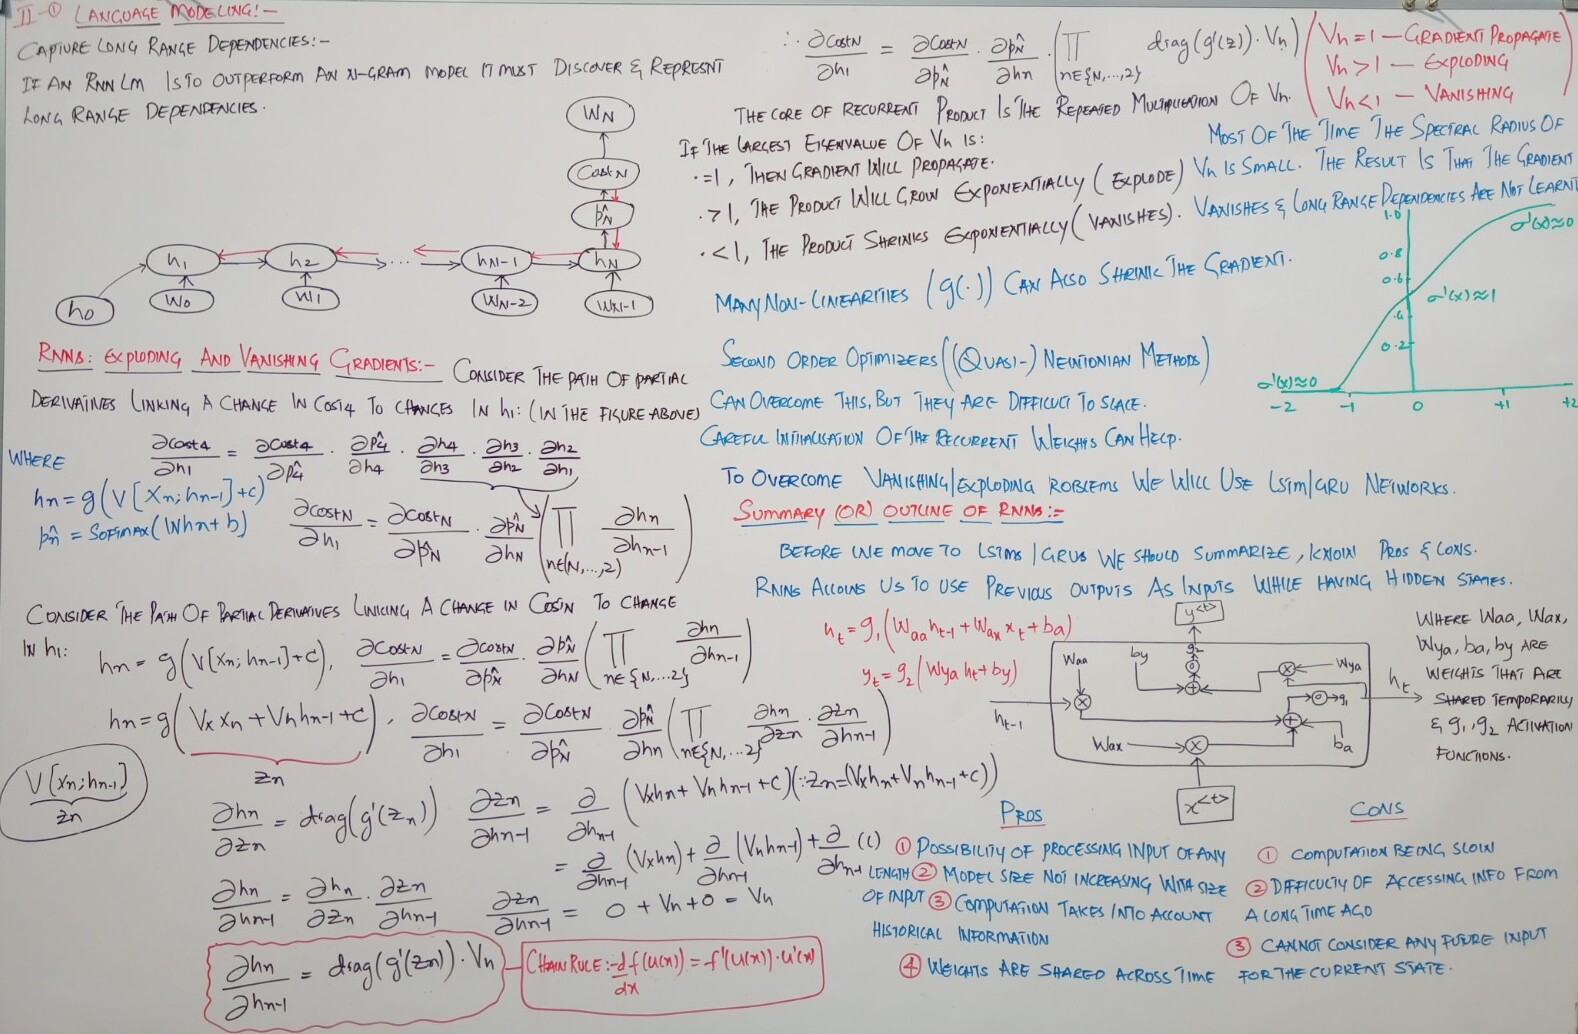 II-① LANGUAGE MODELING:-
CAPTURE LONG RANGE DEPENDENCIES:-
IF AN RNN LM IS TO OUTPERFORM AN N-GRAM MODEL IT MUST DISCOVER & REPRESNT
LONG RANGE DEPENDENCIES.
WN
CostN
p̂N
h1
h2
...
hN-1
hN
h0
W0
W1
WN-2
WN-1
RNNs: EXPLODING AND VANISHING GRADIENTS:- CONSIDER THE PATH OF PARTIAL
DERIVATIVES LINKING A CHANGE IN Cost4 TO CHANGES IN h1: (IN THE FIGURE ABOVE)
WHERE
∂cost4/∂h1 = ∂cost4/∂p̂4 · ∂p̂4/∂h4 · ∂h4/∂h3 · ∂h3/∂h2 · ∂h2/∂h1
hn = g(V[Xn; hn-1]+c)
p̂n = SOFTMAX(Whn+b)
∂costN/∂h1 = ∂costN/∂p̂N · ∂p̂N/∂hN (∏ n∈(N,...,2) ∂hn/∂hn-1)
CONSIDER THE PATH OF PARTIAL DERIVATIVES LINKING A CHANGE IN COSTN TO CHANGE
IN h1:
hn = g(V[Xn; hn-1]+C), ∂CostN/∂h1 = ∂CostN/∂p̂N · ∂p̂N/∂hN (∏ n∈{N,...2} ∂hn/∂hn-1)
hn = g(Vx Xn + Vh hn-1 + C), ∂CostN/∂h1 = ∂CostN/∂p̂N · ∂p̂N/∂hn (∏ n∈{N,...2} ∂hn/∂zn · ∂zn/∂hn-1)
zn
V[xn; hn-1]
zn
∂hn/∂zn = diag(g'(zn)) ∂zn/∂hn-1 = ∂/∂hn-1 (Vxhn + Vhhn-1 + C)(∵ zn = (Vxhn+Vnhn-1+c))
= ∂/∂hn-1 (Vxhn) + ∂/∂hn-1 (Vhhn-1) + ∂/∂hn-1 (C)
∂hn/∂hn-1 = ∂hn/∂zn · ∂zn/∂hn-1
∂zn/∂hn-1 = 0 + Vh + 0 = Vh
∂hn/∂hn-1 = diag(g'(zn)) · Vh
CHAIN RULE:- d/dx f(u(x)) = f'(u(x))·u'(x)
∴ ∂CostN/∂h1 = ∂CostN/∂p̂N · ∂p̂N/∂hn · (∏ n∈{N,...,2} diag(g'(z)) · Vh)
Vh=1 — GRADIENT PROPAGATE
Vh>1 — EXPLODING
Vh<1 — VANISHING
THE CORE OF RECURRENT PRODUCT IS THE REPEATED MULTIPLICATION OF Vh.
IF THE LARGEST EIGENVALUE OF Vh IS:
·=1, THEN GRADIENT WILL PROPAGATE.
·>1, THE PRODUCT WILL GROW EXPONENTIALLY (EXPLODE)
·<1, THE PRODUCT SHRINKS EXPONENTIALLY (VANISHES).
MOST OF THE TIME THE SPECTRAL RADIUS OF
Vh IS SMALL. THE RESULT IS THAT THE GRADIENT
VANISHES & LONG RANGE DEPENDENCIES ARE NOT LEARNT
MANY NON-LINEARITIES (g(·)) CAN ALSO SHRINK THE GRADIENT.
SECOND ORDER OPTIMIZERS ((QUASI-) NEWTONIAN METHODS)
CAN OVERCOME THIS, BUT THEY ARE DIFFICULT TO SCALE.
CAREFUL INITIALISATION OF THE RECURRENT WEIGHTS CAN HELP.
1.0
σ'(x)≈0
0.8
0.6
σ'(x)≈1
.4
0.2
σ'(x)≈0
-2
-1
0
+1
+2
TO OVERCOME VANISHING/EXPLODING ROBLEMS WE WILL USE LSTM/GRU NETWORKS.
SUMMARY (OR) OUTLINE OF RNNs:-
BEFORE WE MOVE TO LSTMs / GRUs WE SHOULD SUMMARIZE, KNOW PROS & CONS.
RNNs ALLOWS US TO USE PREVIOUS OUTPUTS AS INPUTS WHILE HAVING HIDDEN STATES.
ht = g1(Waa ht-1 + Wax xt + ba)
yt = g2(Wya ht + by)
y<t>
Waa
by
g2
Wya
g1
ht-1
ht
Wax
ba
x<t>
WHERE Waa, Wax,
Wya, ba, by ARE
WEIGHTS THAT ARE
SHARED TEMPORARILY
& g1, g2 ACTIVATION
FUNCTIONS.
PROS
① POSSIBILITY OF PROCESSING INPUT OF ANY
LENGTH ② MODEL SIZE NOT INCREASING WITH SIZE
OF INPUT ③ COMPUTATION TAKES INTO ACCOUNT
HISTORICAL INFORMATION
④ WEIGHTS ARE SHARED ACROSS TIME
CONS
① COMPUTATION BEING SLOW
② DIFFICULTY OF ACCESSING INFO FROM
A LONG TIME AGO
③ CANNOT CONSIDER ANY FUTURE INPUT
FOR THE CURRENT STATE.